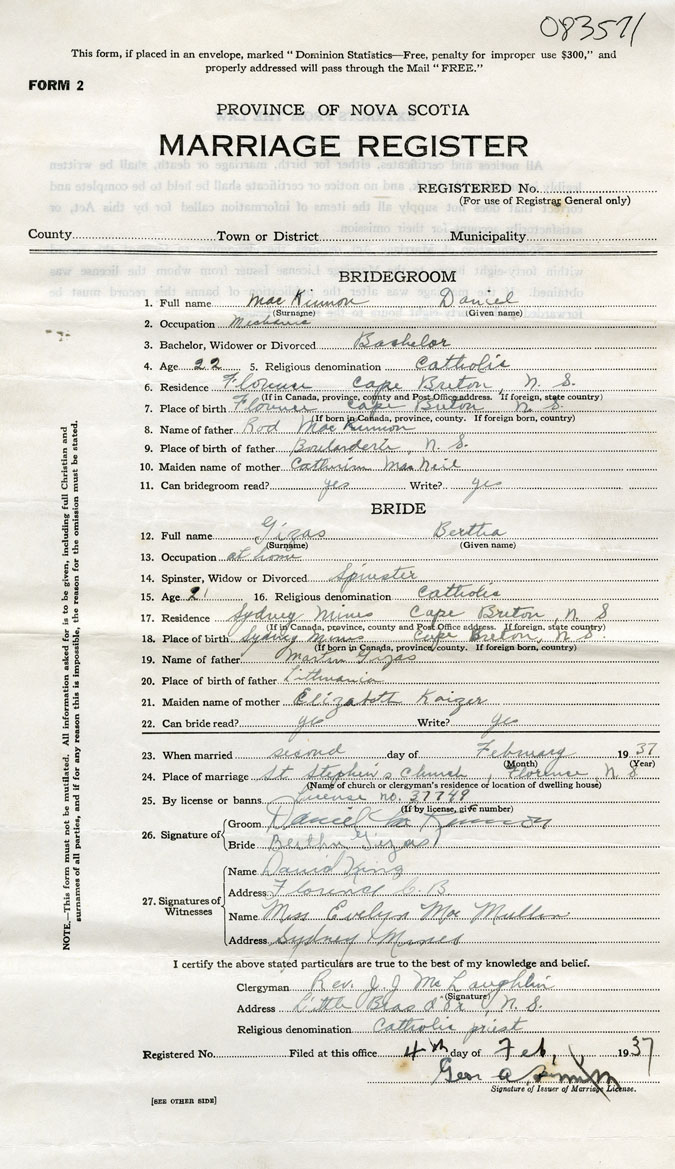 08357/
This form, if placed in an envelope, marked "Dominion Statistics—Free, penalty for improper use $300," and
properly addressed will pass through the Mail "FREE."
FORM 2
PROVINCE OF NOVA SCOTIA
MARRIAGE REGISTER
REGISTERED No.
(For use of Registrar General only)
County Town or District Municipality
BRIDEGROOM
1. Full name Mac Kinnon Daniel
(Surname) (Given name)
2. Occupation Mechanic
3. Bachelor, Widower or Divorced Bachelor
4. Age 22 5. Religious denomination Catholic
6. Residence Florence Cape Breton, N. S.
(If in Canada, province, county and Post Office address. If foreign, state country)
7. Place of birth Florence Cape Breton N. S.
(If born in Canada, province, county. If foreign born, country)
8. Name of father Rod Mac Kinnon
9. Place of birth of father Boularderie, N. S.
10. Maiden name of mother Catherine Mac Neil
11. Can bridegroom read? yes Write? yes
BRIDE
12. Full name Gizas Bertha
(Surname) (Given name)
13. Occupation at home
14. Spinster, Widow or Divorced Spinster
15. Age 21 16. Religious denomination Catholic
17. Residence Sydney Mines Cape Breton, N S
(If in Canada, province, county and Post Office address. If foreign, state country)
18. Place of birth Sydney Mines Cape Breton, N S.
(If born in Canada, province, county. If foreign born, country)
19. Name of father Martin Gizas
20. Place of birth of father Lithuania
21. Maiden name of mother Elizabeth Kaizer
22. Can bride read? yes Write? yes
23. When married second day of February 1937
(Month) (Year)
24. Place of marriage St Stephen's Church, Florence, N S
(Name of church or clergyman's residence or location of dwelling house)
25. By license or banns License no. 37749
(If by license, give number)
26. Signature of Groom Daniel Mc Kinnon
Bride Bertha Gizas
27. Signatures of Witnesses Name David King
Address Florence C. B.
Name Miss Evelyn Mac Mullin
Address Sydney Mines
I certify the above stated particulars are true to the best of my knowledge and belief.
Clergyman Rev. J. J. McLaughlin
(Signature)
Address Little Bras d'Or, N. S.
Religious denomination Catholic priest
Registered No. Filed at this office 4th day of Feb, 1937
Geo A
Signature of Issuer of Marriage License.
[SEE OTHER SIDE]
NOTE.—This form must not be mutilated. All information asked for is to be given, including full Christian and
surnames of all parties, and if for any reason this is impossible, the reason for the omission must be stated.